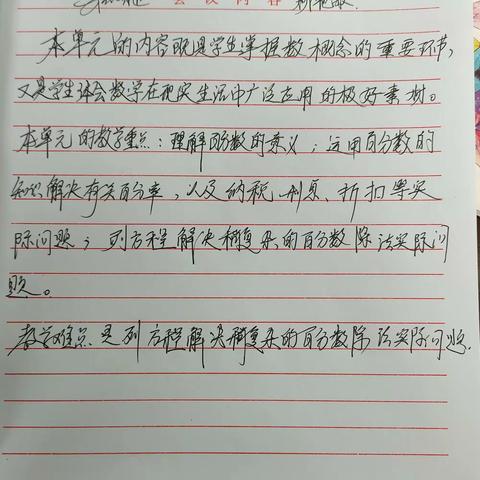 会议内容
本单元的内容既是学生掌握数概念的重要环节,
又是学生体会数学在现实生活中广泛应用的极好素材。
本单元的教学重点:理解百分数的意义;运用百分数的
知识解决有关百分率,以及纳税、利息、折扣等实
际问题;列方程解决稍复杂的百分数除法实际问
题。
教学难点是列方程解决稍复杂的百分数除法实际问题.